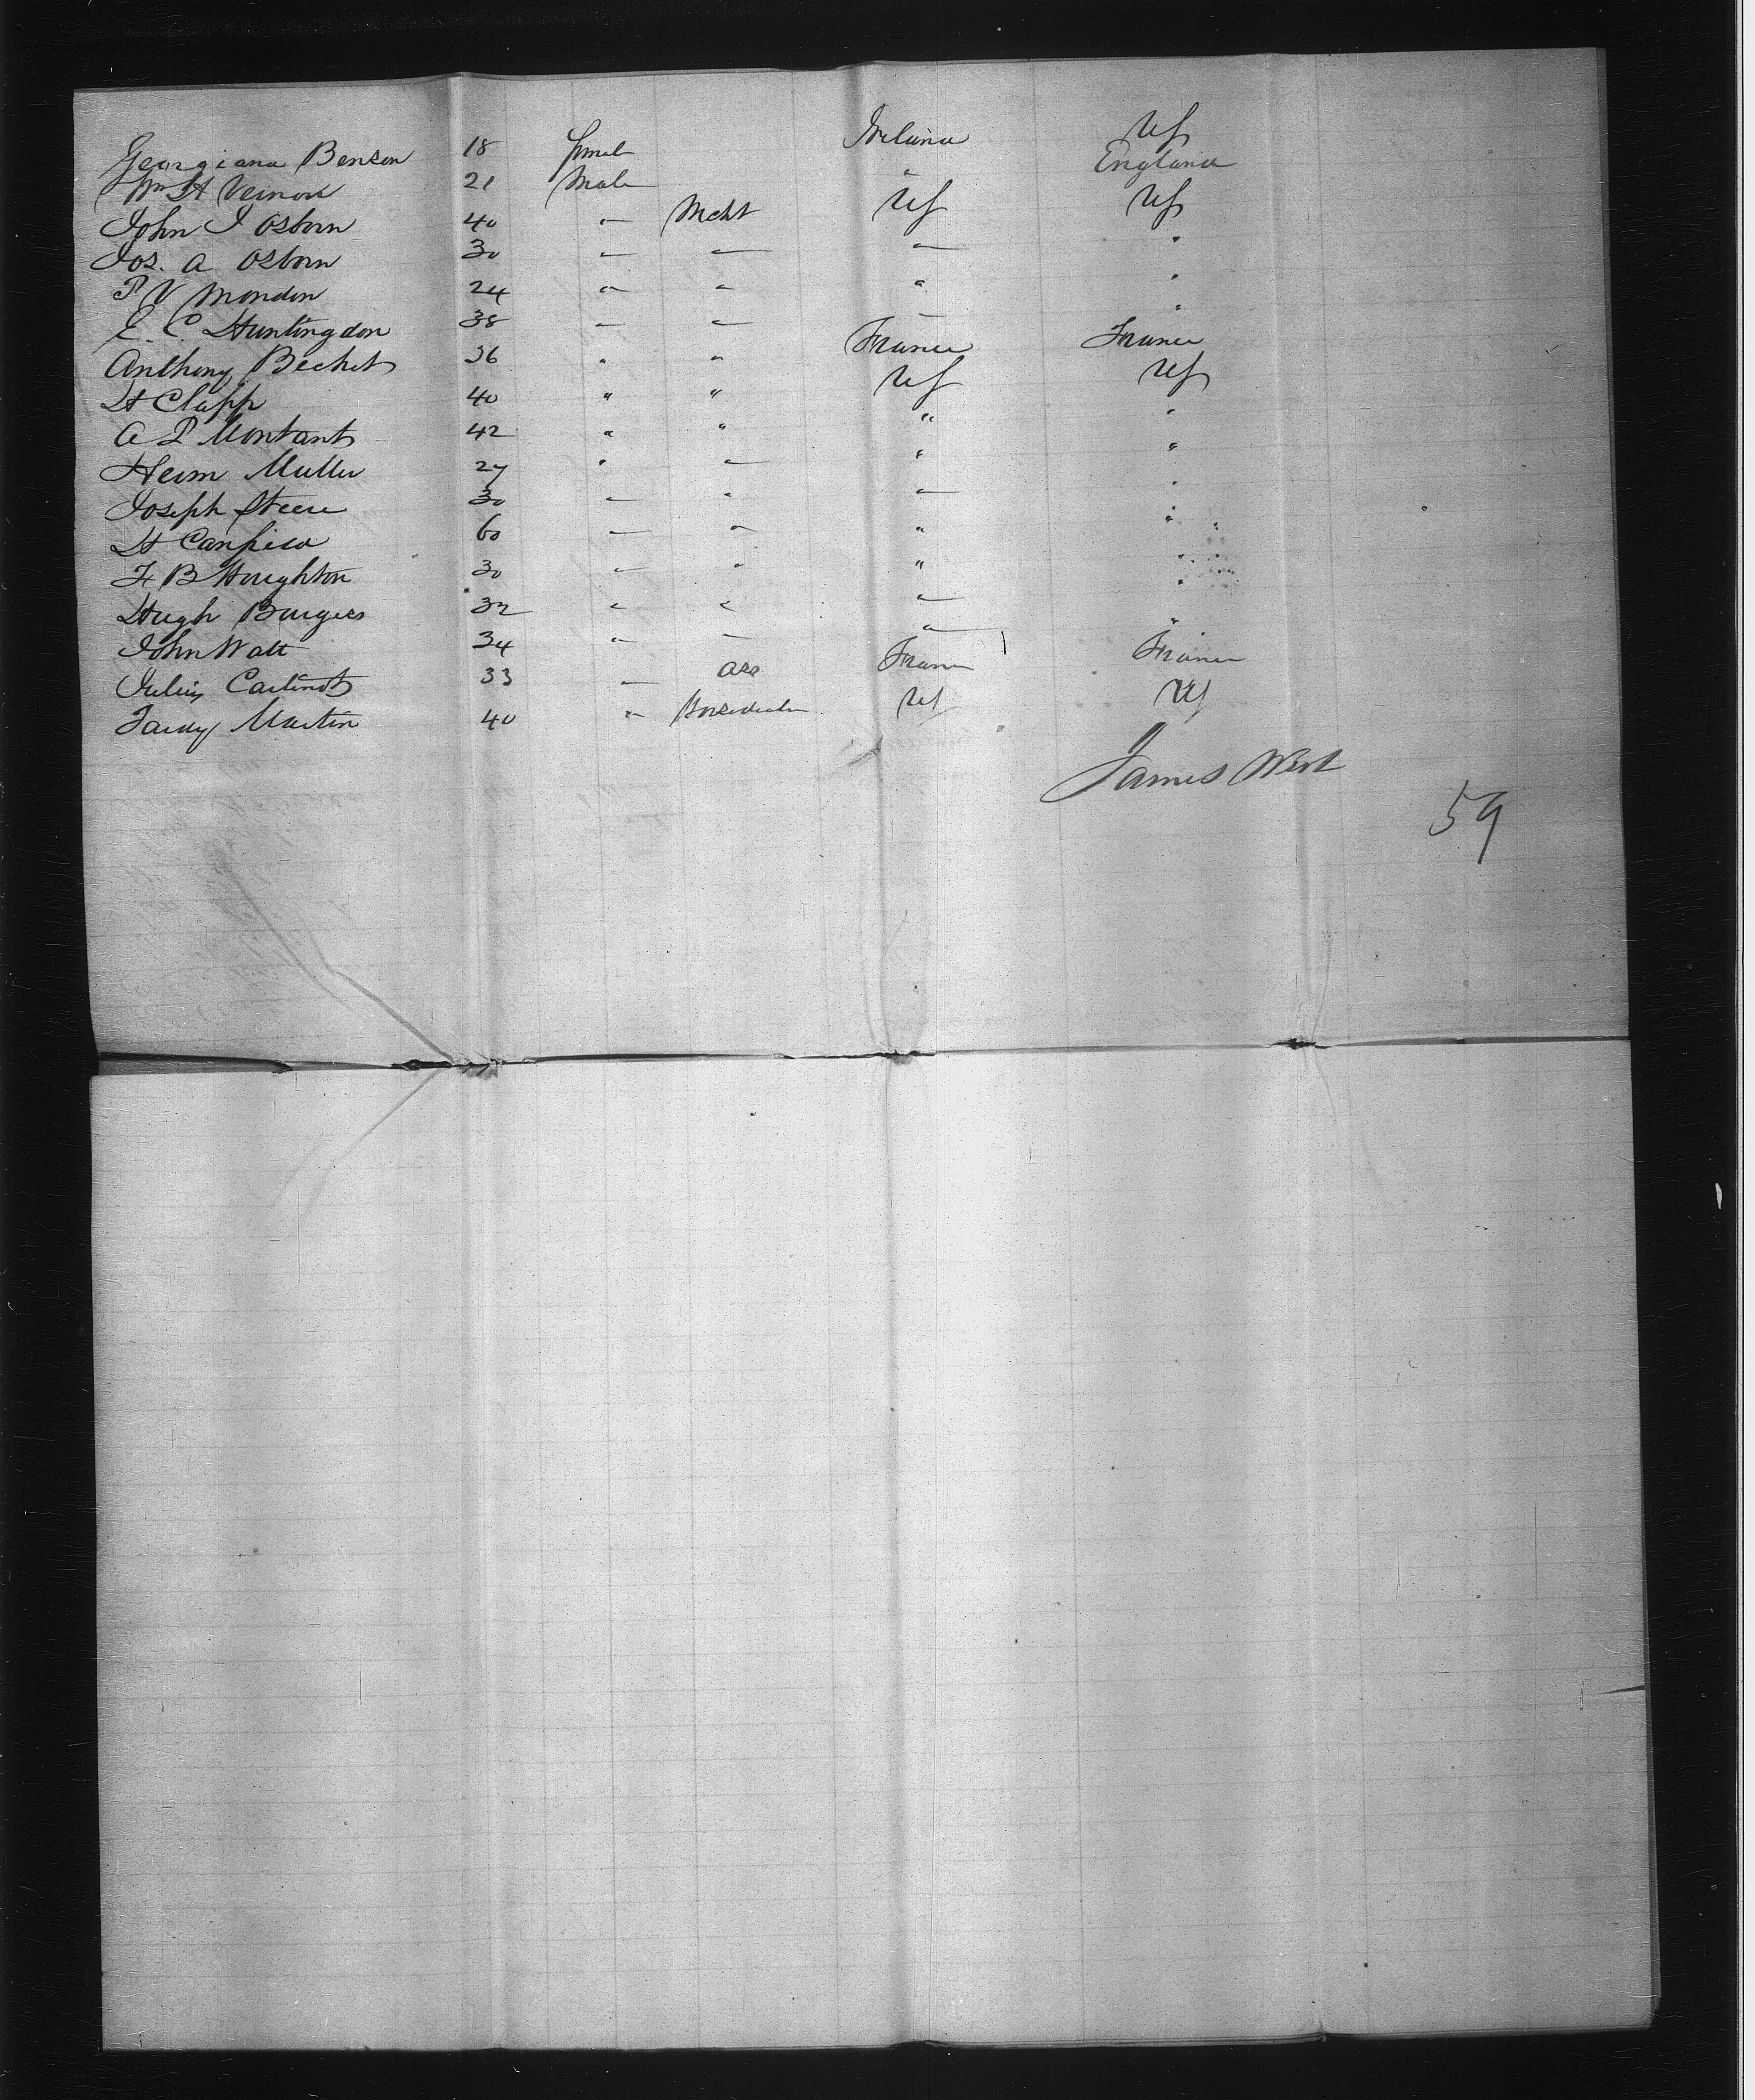 Georgiana Benson 18 female Ireland US
Wm H Vernon 21 Male " England
John J Osborn 40 " Mcht US US
Jos. A Osborn 30 " " " "
P V Mondon 24 " " " "
E. C. Huntingdon 38 " " " "
Anthony Bechet 36 " " France France
H Clapp 40 " " US US
A P Montant 42 " " " "
Herm Muller 27 " " " "
Joseph Steere 30 " " " "
H Canfield 60 " " " "
F B Houghton 30 " " " "
Hugh Burgess 32 " " " "
John Watt 34 " " " "
Julius 33 " France France
Martin 40 " US US
James West
59